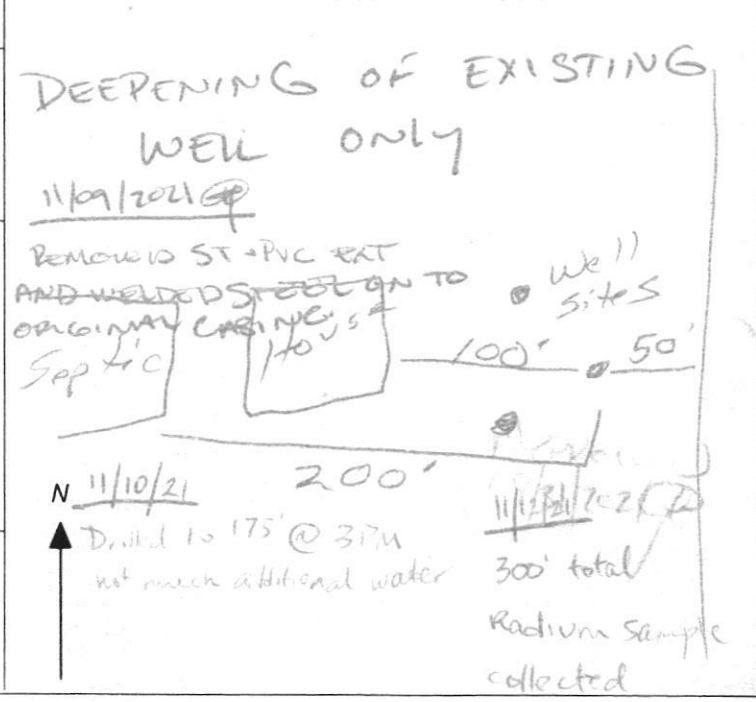 DEEPENING OF EXISTING
WELL ONLY
11/09/2021
REMOVED ST + PVC EXT
AND WELDED STEEL ON TO
ORIGINAL CASING.
Well
Sites
House
Septic
100'
50'
200'
N
11/10/21
Drilled to 175' @ 3PM
not much additional water
11/12/21
300' total
Radium Sample
collected